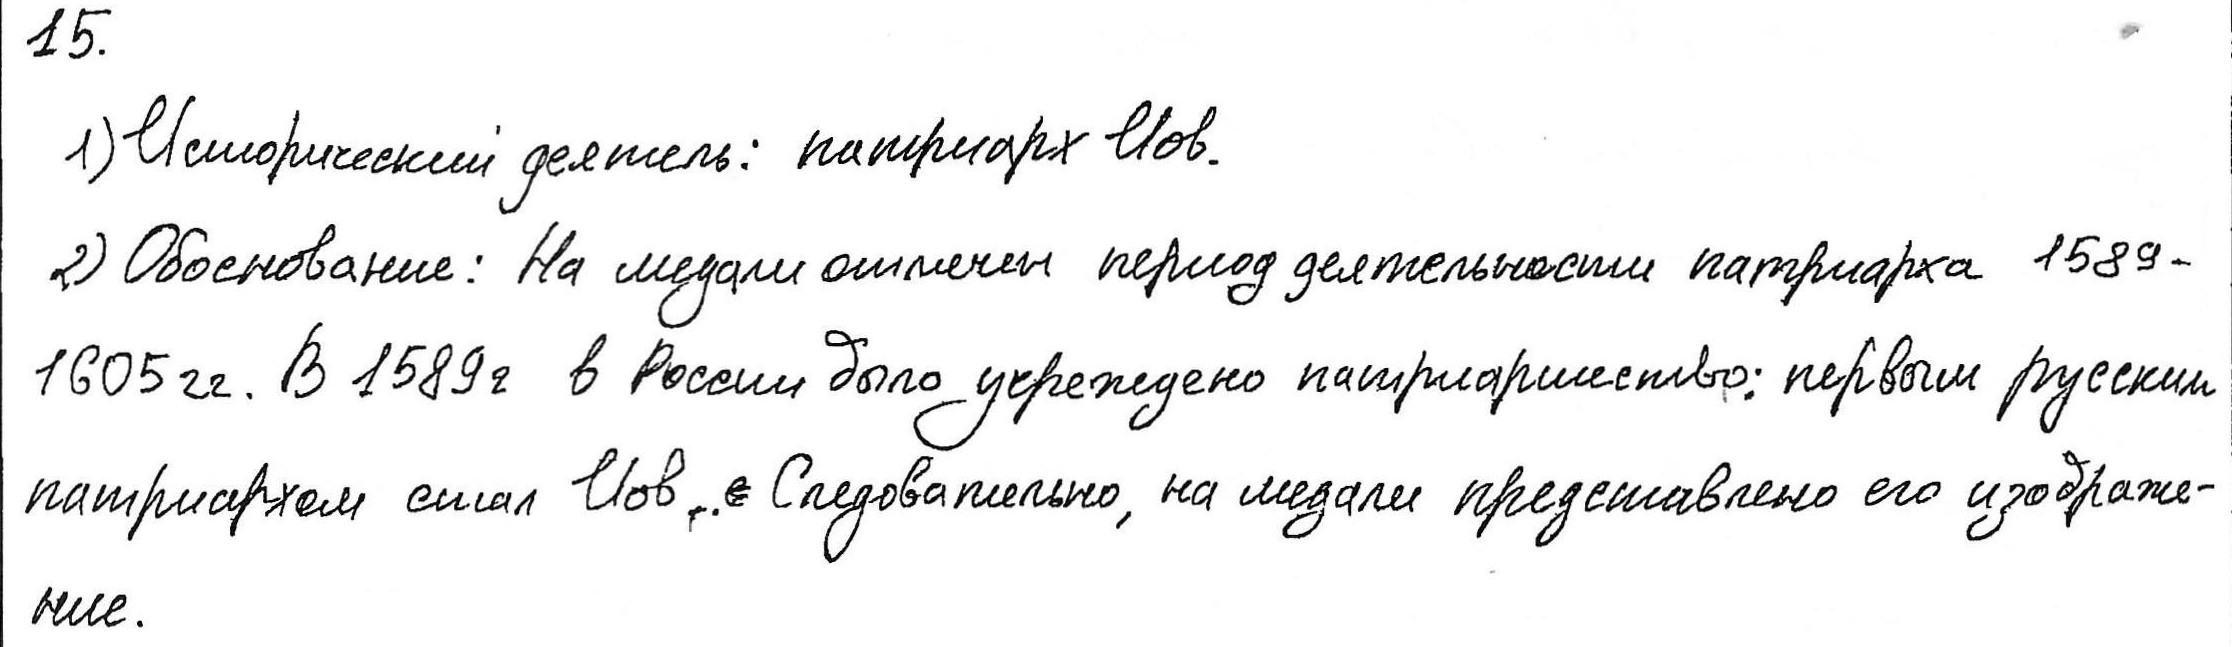 15.
1) Исторический деятель: патриарх Иов.
2) Обоснование: На медали отмечен период деятельности патриарха 1589-
1605 гг. В 1589 г в России было учреждено патриаршество: первым русским
патриархом стал Иов. Следовательно, на медали представлено его изображе-
ние.